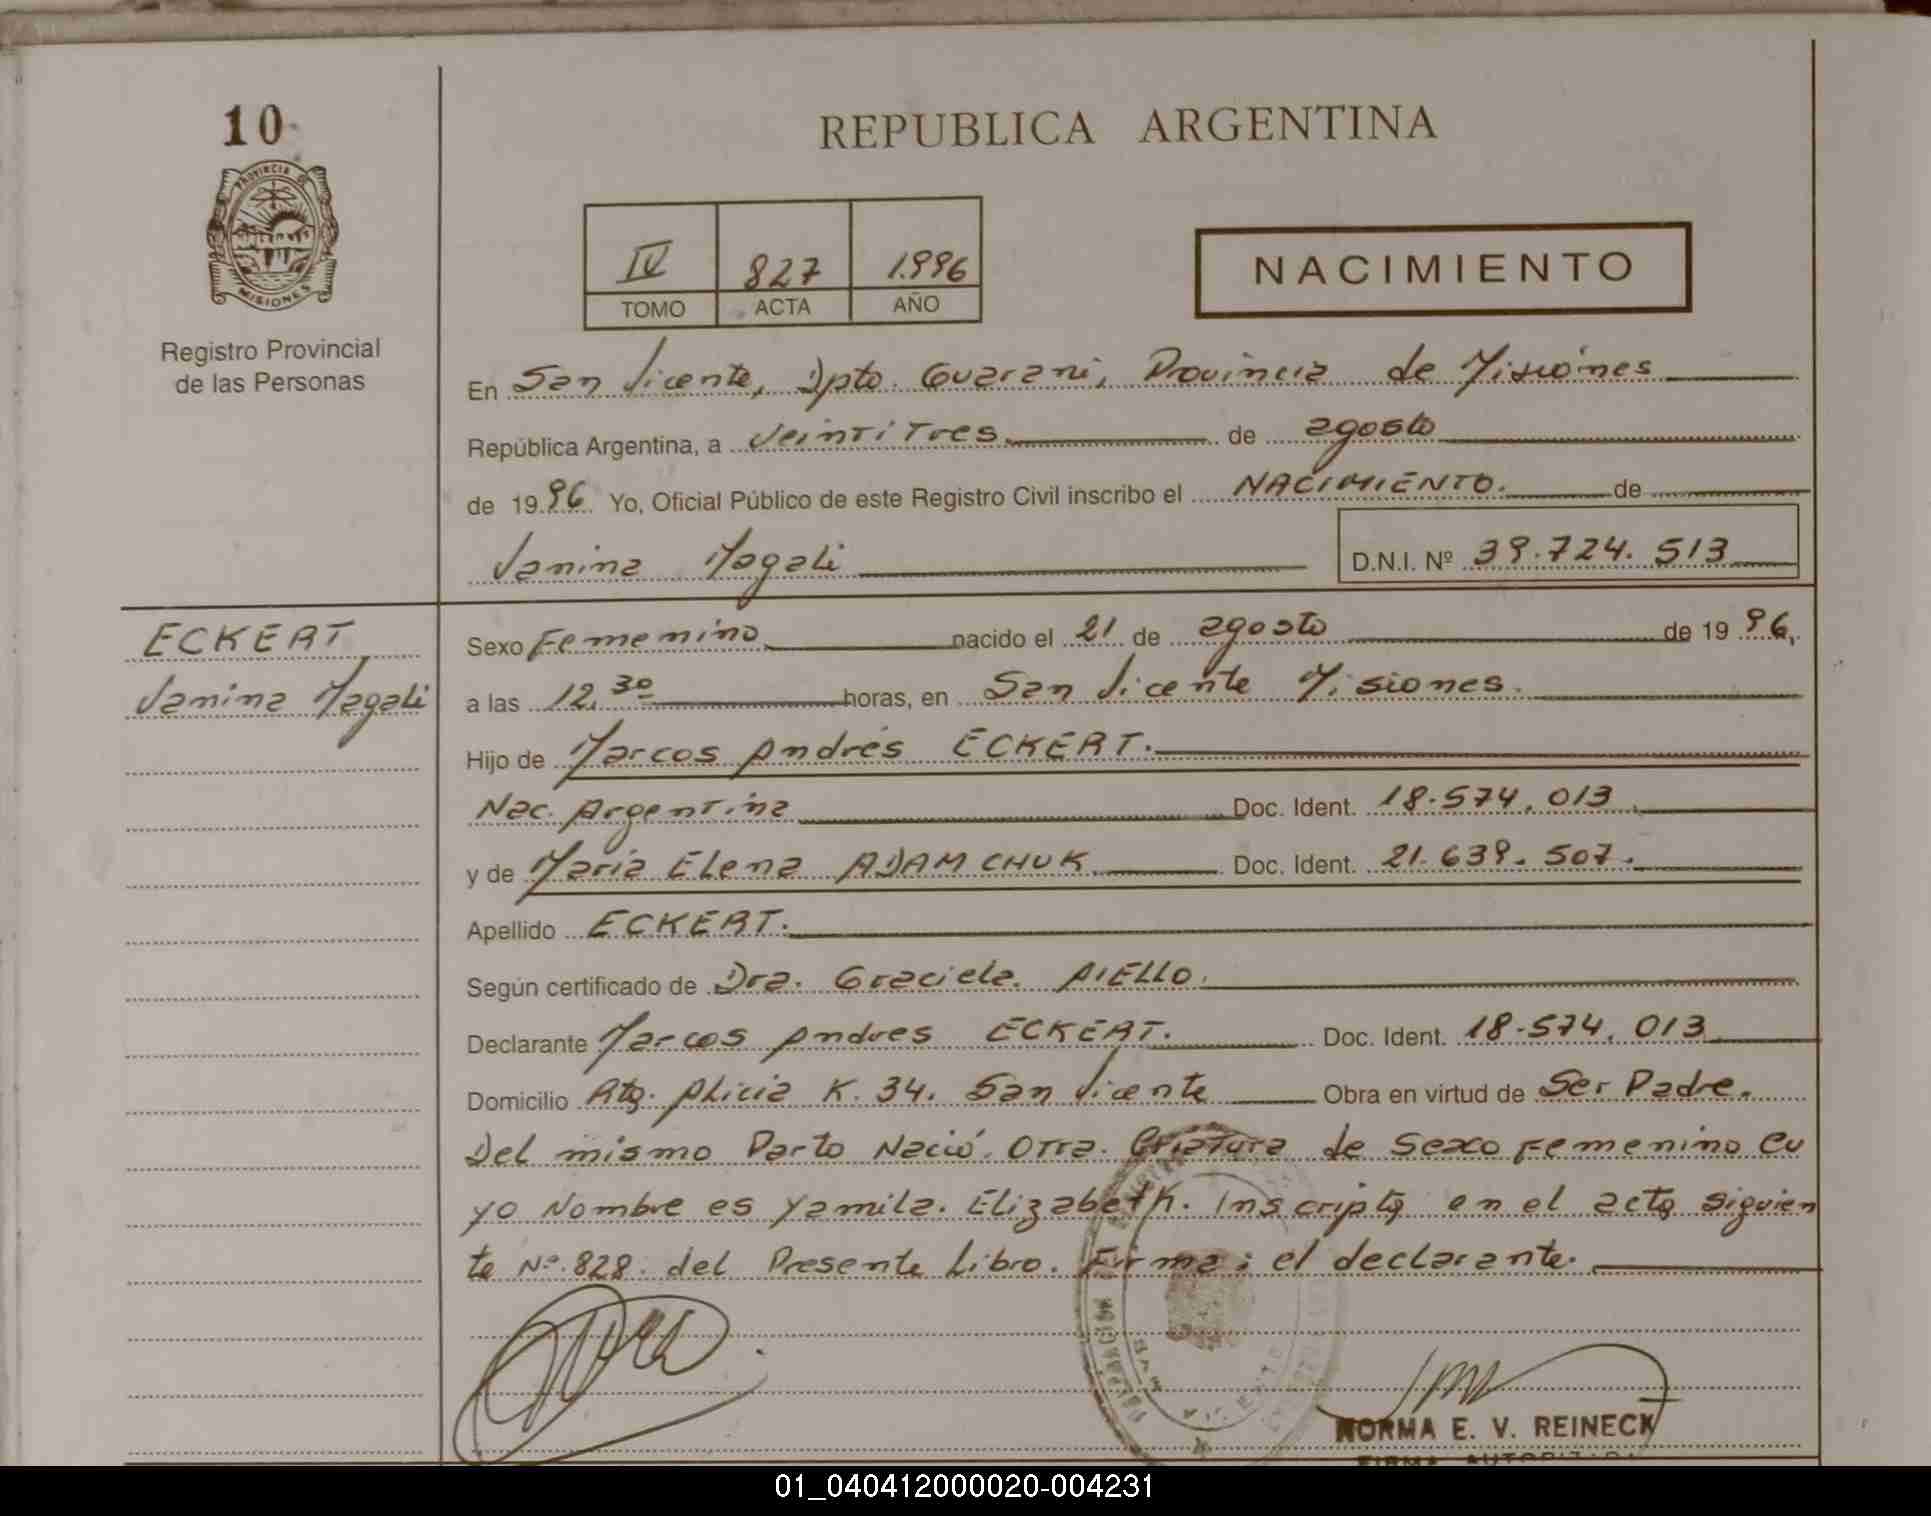 10
PROVINCIA DE
MISIONES
Registro Provincial
de las Personas
REPUBLICA ARGENTINA
IV 827 1.996
TOMO ACTA AÑO
NACIMIENTO
En San Vicente, Dpto. Guarani, Provincia de Misiones
República Argentina, a Veintitres de agosto
de 1996. Yo, Oficial Público de este Registro Civil inscribo el NACIMIENTO. de
Vanina Magali D.N.I. Nº 39.724.513
ECKERT
Vanina Magali
Sexo Femenino nacido el 21 de agosto de 1996,
a las 12,30 horas, en San Vicente Misiones.
Hijo de Marcos Andrés ECKERT.
Nac. Argentina Doc. Ident. 18.574.013
y de Maria Elena ADAMCHUK Doc. Ident. 21.639.507.
Apellido ECKERT.
Según certificado de Dra. Graciela AIELLO.
Declarante Marcos Andres ECKERT. Doc. Ident. 18.574.013
Domicilio Rta. Alicia K. 34. San Vicente Obra en virtud de Ser Padre.
Del mismo Parto Nació. Otra. Criatura de Sexo Femenino Cu
yo Nombre es Yamila. Elizabeth. Inscripta en el acta siguien
te Nº 828. del Presente Libro. Firma: el declarante.
NORMA E. V. REINECK
FIRMA AUTORIZADA
01_040412000020-004231